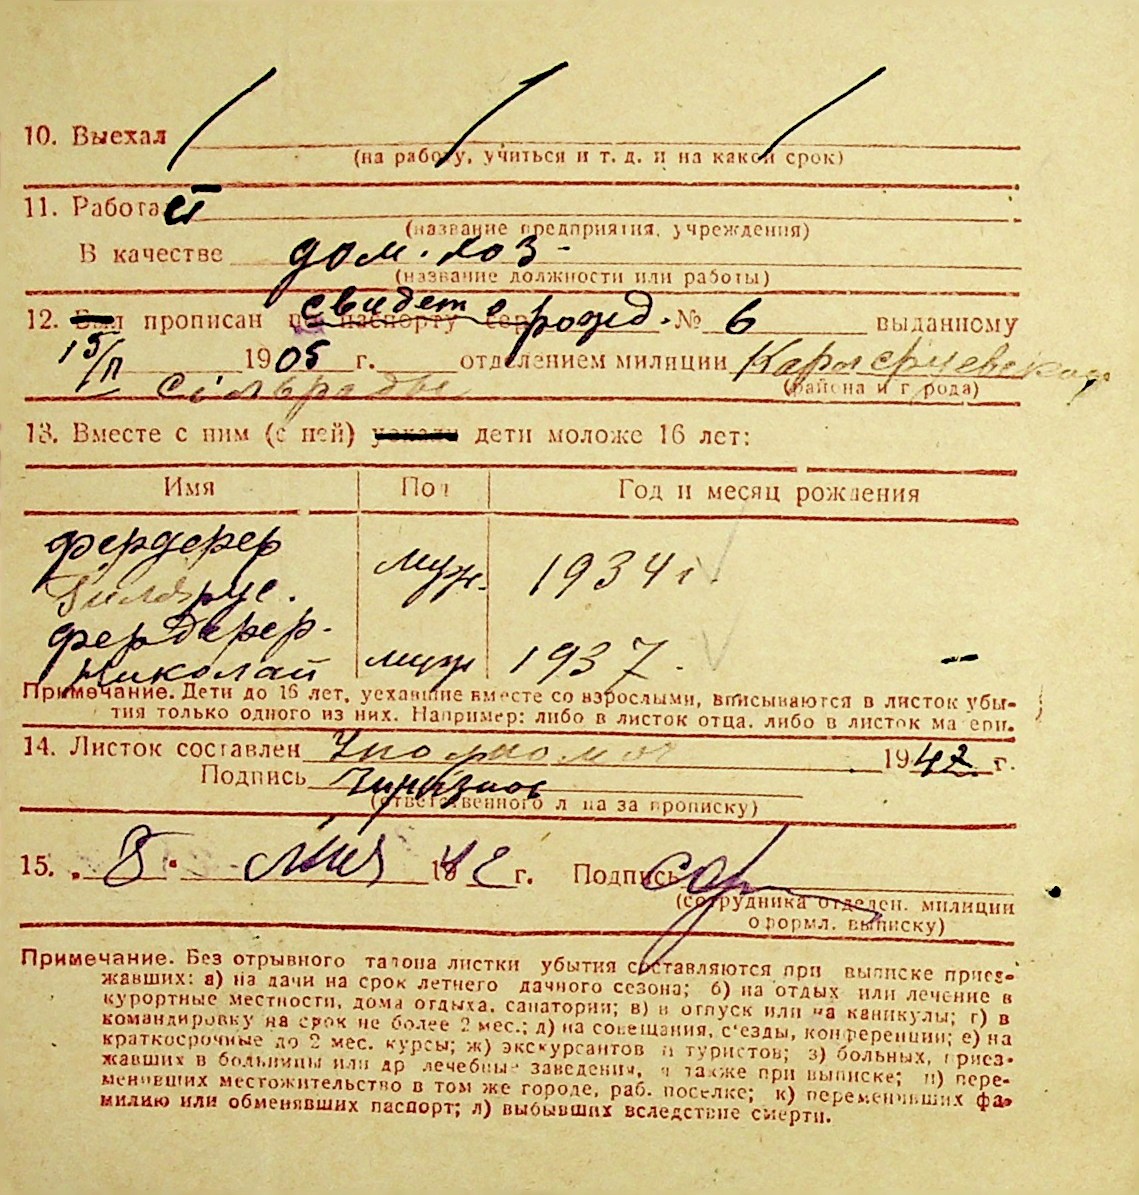 10. Выехал
(на работу, учиться и т. д. и на какой срок)
11. Работает
(название предприятия, учреждения)
В качестве дом. хоз-
(название должности или работы)
12. Был прописан по паспорту сер свидет о рожд. № 6 выданному
15/II 1905 г. отделением милиции
(района и города)
13. Вместе с ним (с ней) уехали дети моложе 16 лет:
Имя Пол Год и месяц рождения
Фердерер муж. 1934 г.
Фердерер.
Николай муж 1937.
Примечание. Дети до 16 лет, уехавшие вместе со взрослыми, вписываются в листок убы-
тия только одного из них. Например: либо в листок отца, либо в листок матери.
14. Листок составлен 1942 г.
Подпись
(ответственного лица за прописку)
15. „8" 1942 г. Подпись
(сотрудника отделен. милиции
оформл. выписку)
Примечание. Без отрывного талона листки убытия составляются при выписке приез-
жавших: а) на дачи на срок летнего дачного сезона; б) на отдых или лечение в
курортные местности, дома отдыха, санатории; в) в отпуск или на каникулы; г) в
командировку на срок не более 2 мес.; д) на совещания, с'езды, конференции; е) на
краткосрочные до 2 мес. курсы; ж) экскурсантов и туристов; з) больных, приез-
жавших в больницы или др лечебные заведения, а также при выписке; и) пере-
менивших местожительство в том же городе, раб. поселке; к) переменивших фа-
милию или обменявших паспорт; л) выбывших вследствие смерти.